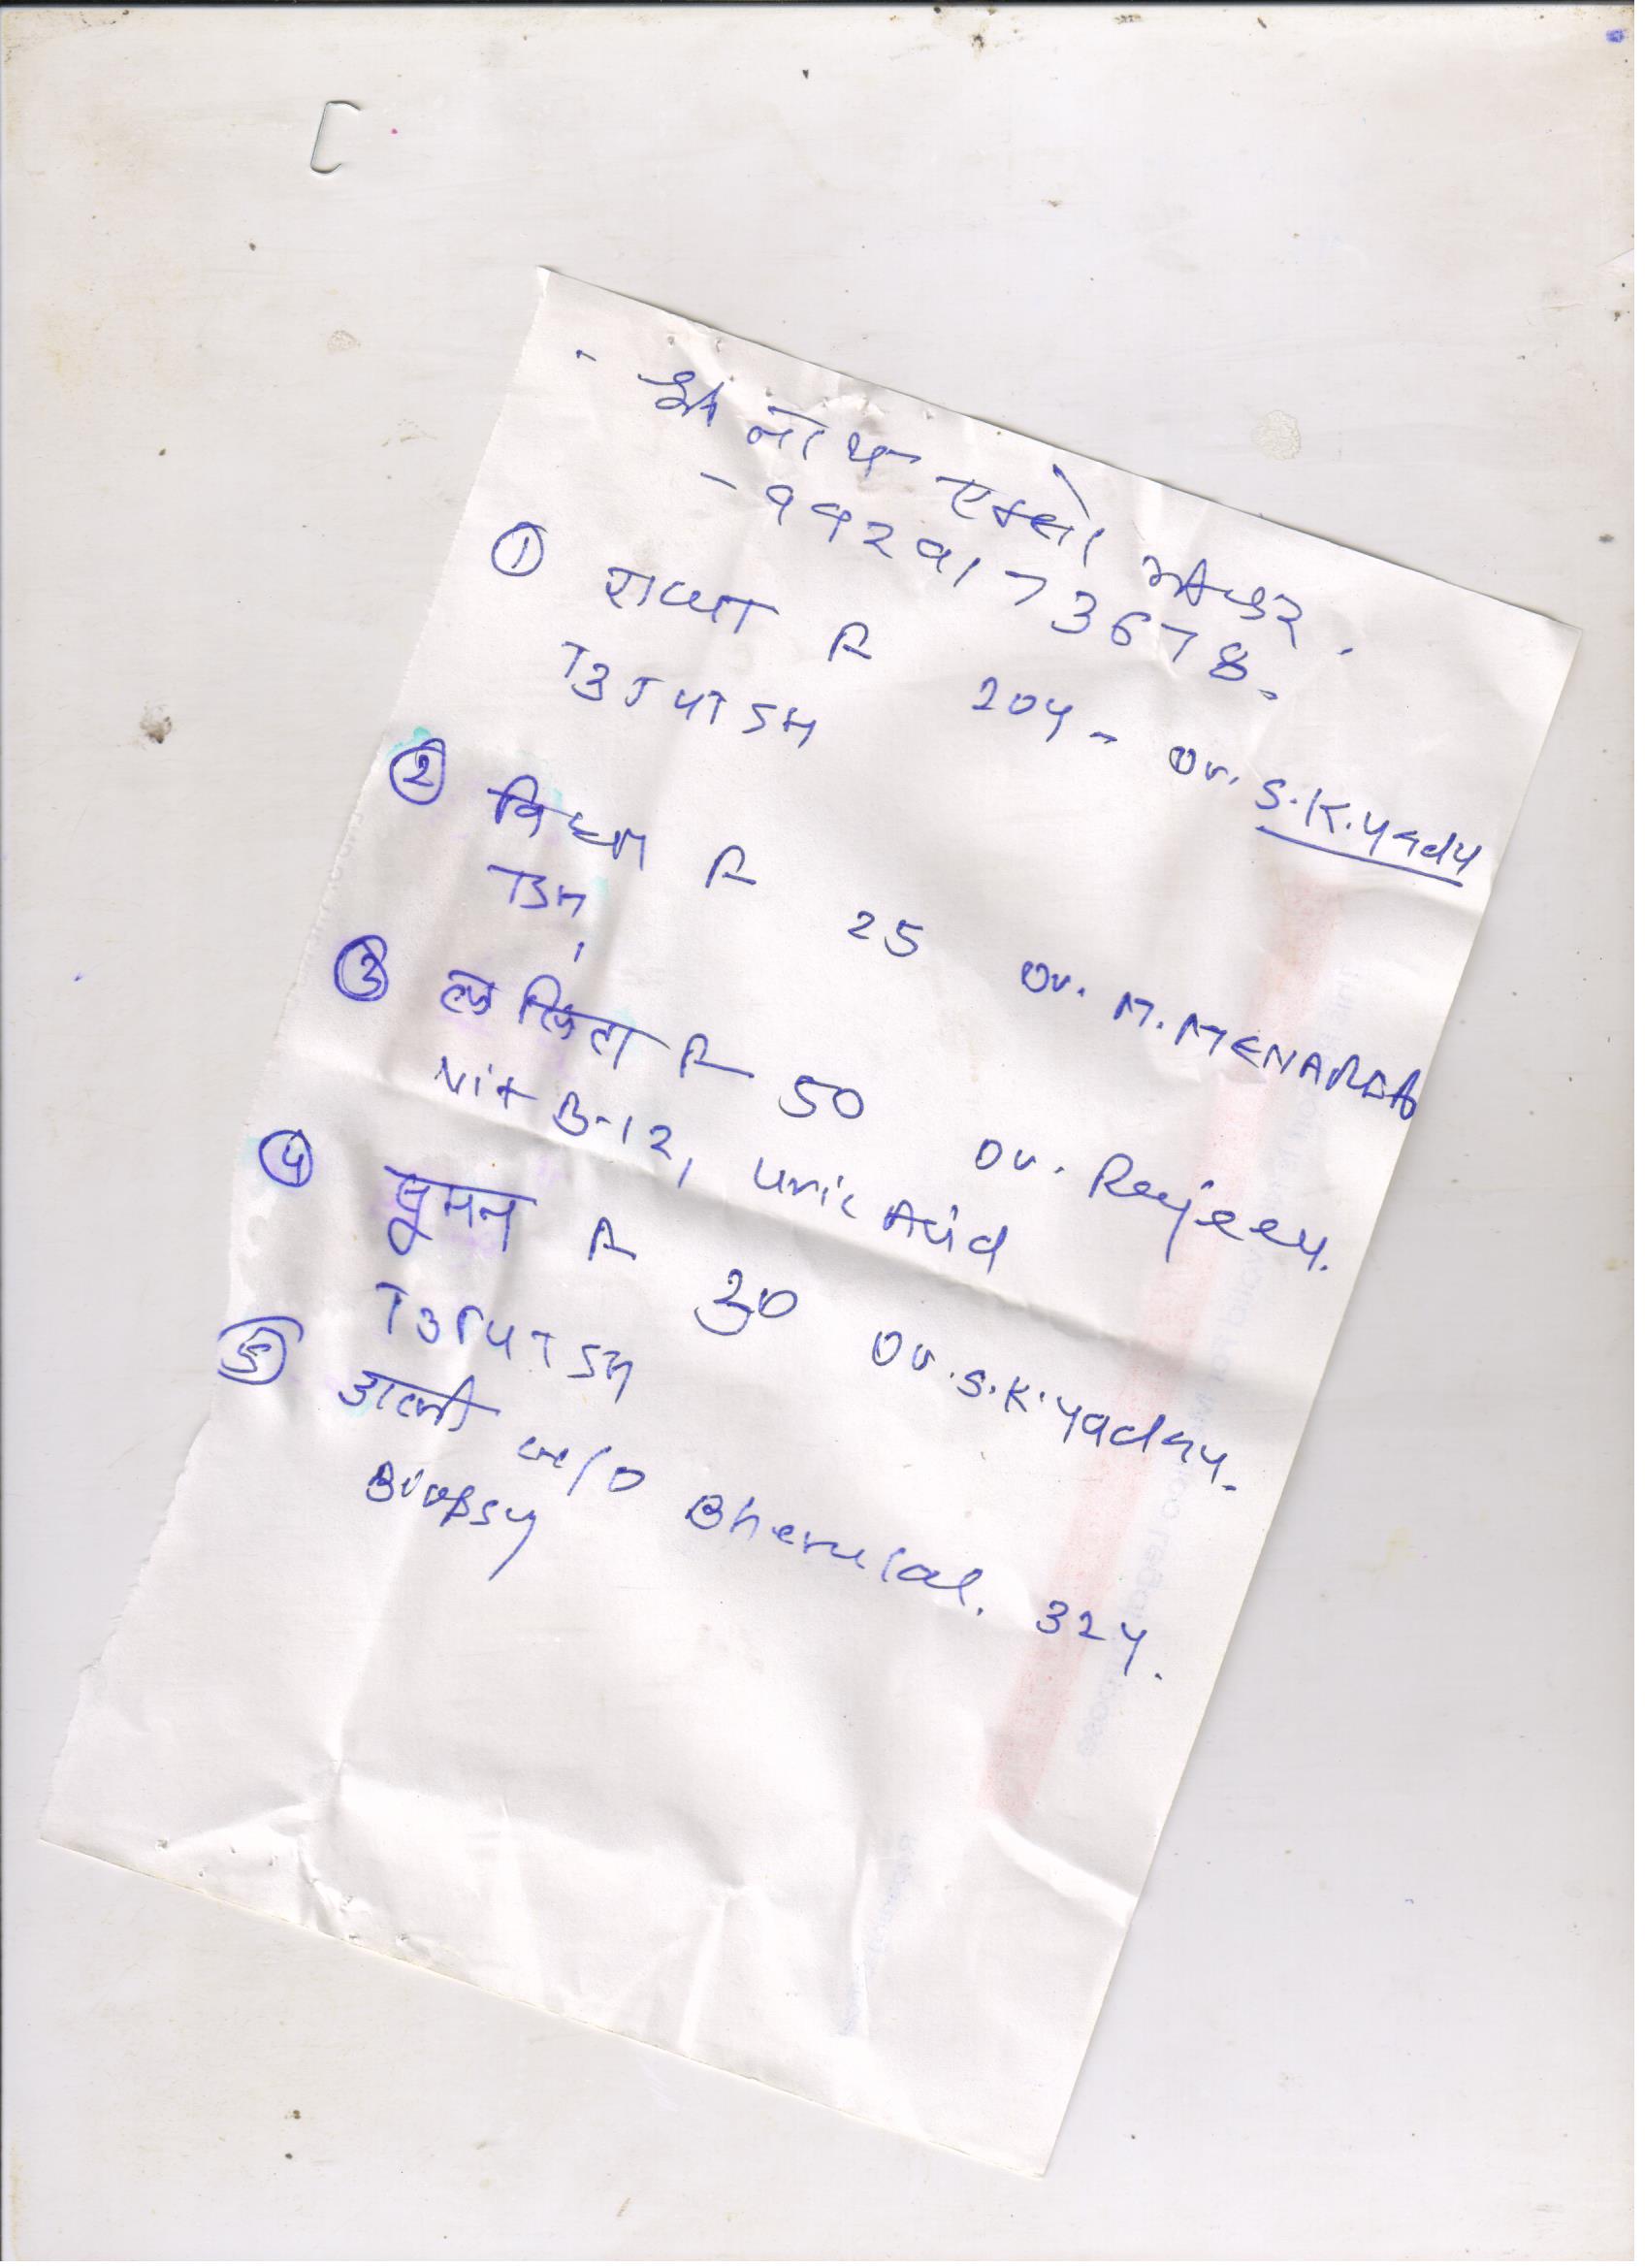 श्री नाथ
- 9929173678.
① R 20y - Dr. S.K.Yadv
T3T4TSH
② R 25 Dr. M.MENARIA
TSH
③ ललिता R 50 Dr. Rajeev.
Vit B-12, Uric Acid
④ सुमन R 30 Dr.S.K.Yadav.
T3T4TSH
⑤ w/o Bherulal. 32y.
Biopsy